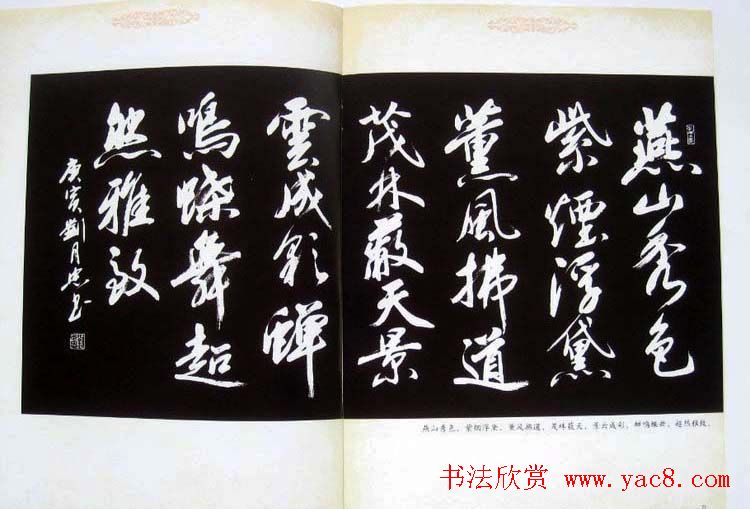 燕山秀色
紫煙浮黛
薰風拂道
茂林蔽天景
雲成彩蟬
鳴蝶舞超
然雅致
庚寅劉月忠书
燕山秀色、紫烟浮黛、薰风拂道、茂林蔽天、景云成彩、蝉鸣蝶舞、超然雅致。
书法欣赏 www.yac8.com